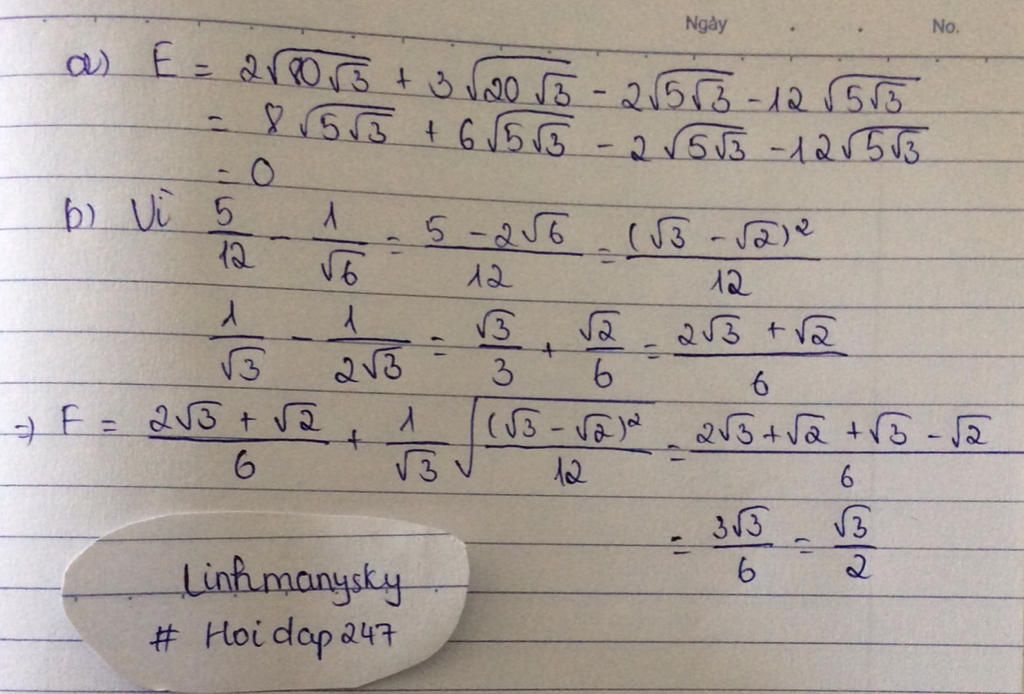 Ngày . . No.
a) E = 2√(80√3) + 3√(20√3) - 2√(5√3) - 12√(5√3)
= 8√(5√3) + 6√(5√3) - 2√(5√3) - 12√(5√3)
= 0
b) Vì 5/12 - 1/√6 = (5 - 2√6)/12 = (√3 - √2)²/12
1/√3 - 1/(2√3) = √3/3 + √2/6 = (2√3 + √2)/6
=> F = (2√3 + √2)/6 + 1/√3 √((√3 - √2)²/12) = (2√3 + √2 + √3 - √2)/6
= 3√3/6 = √3/2
Linhmanysky
# Hoidap247